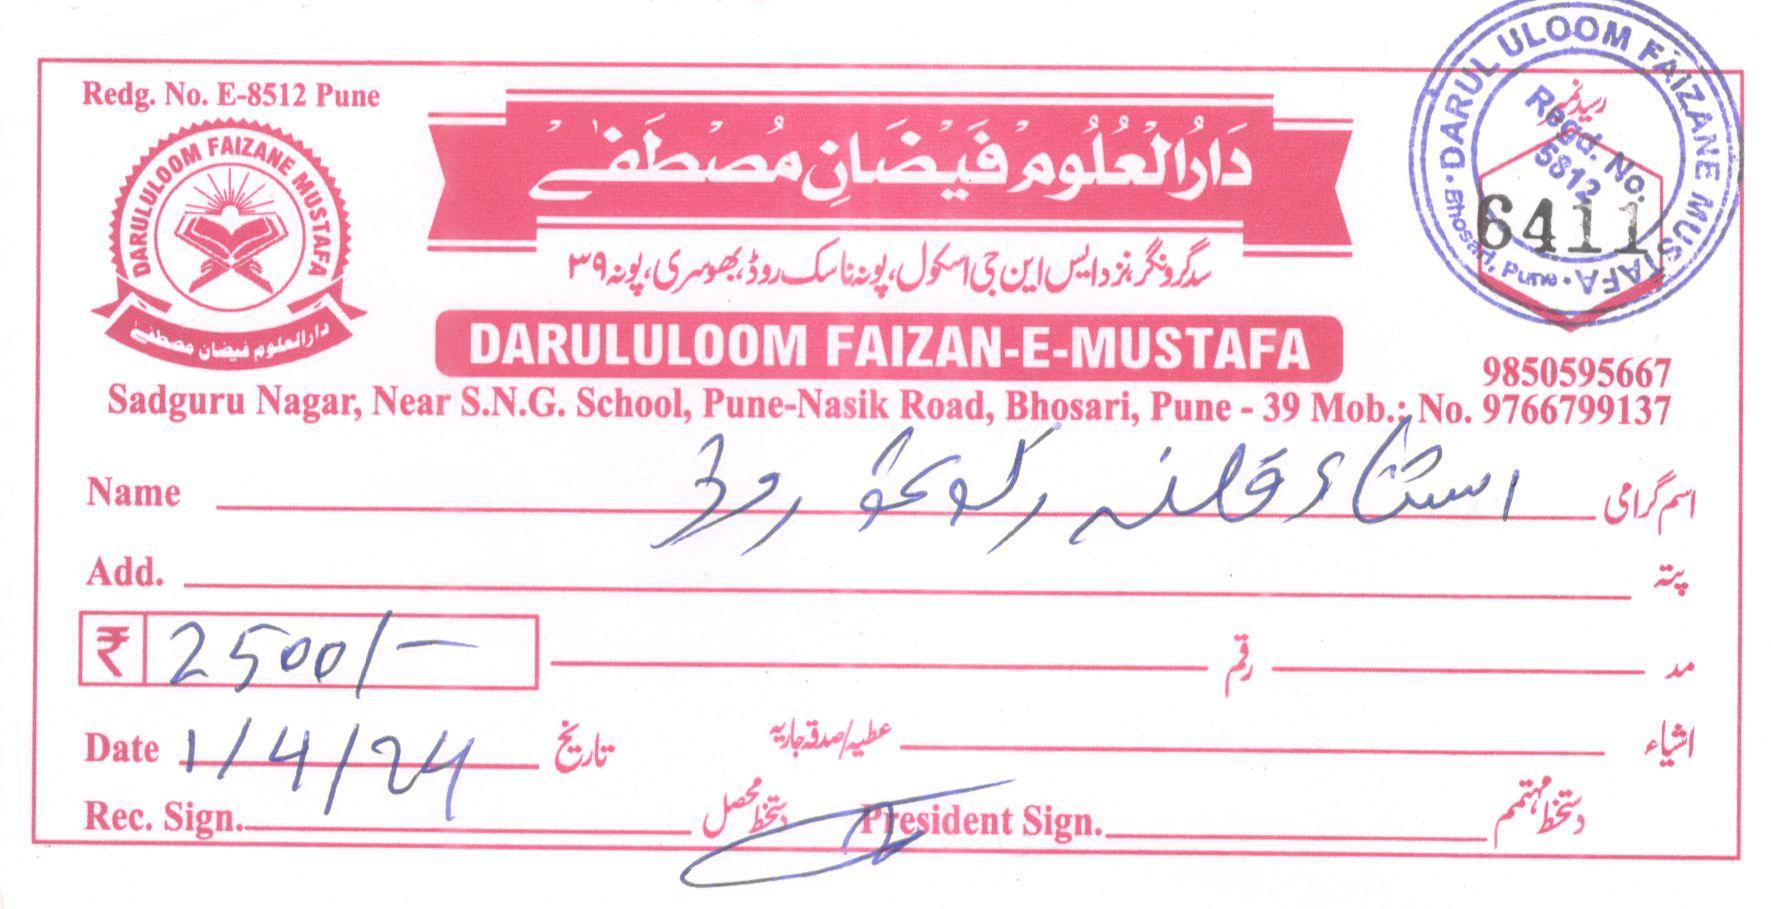 Redg. No. E-8512 Pune
DARULULOOM FAIZANE MUSTAFA
دارالعلوم فیضان مصطفےٰ
دَارُالْعُلُومْ فَیْضَانِ مُصْطَفےٰ
سدگرونگر، نزد ایس این جی اسکول، پونہ ناسک روڈ، بھوسری، پونہ ۳۹
DARULULOOM FAIZAN-E-MUSTAFA
رسید نمبر
6411
DARUL ULOOM FAIZANE MUSTAFA
Bhosari, Pune
Regd. No.
5812
9850595667
Sadguru Nagar, Near S.N.G. School, Pune-Nasik Road, Bhosari, Pune - 39 Mob.: No. 9766799137
Name روڈ اسم گرامی
Add. پتہ
₹ 2500/- رقم مد
Date 1/4/24 تاریخ عطیہ/صدقہ جاریہ اشیاء
Rec. Sign. دستخط محصل President Sign. دستخط مہتمم